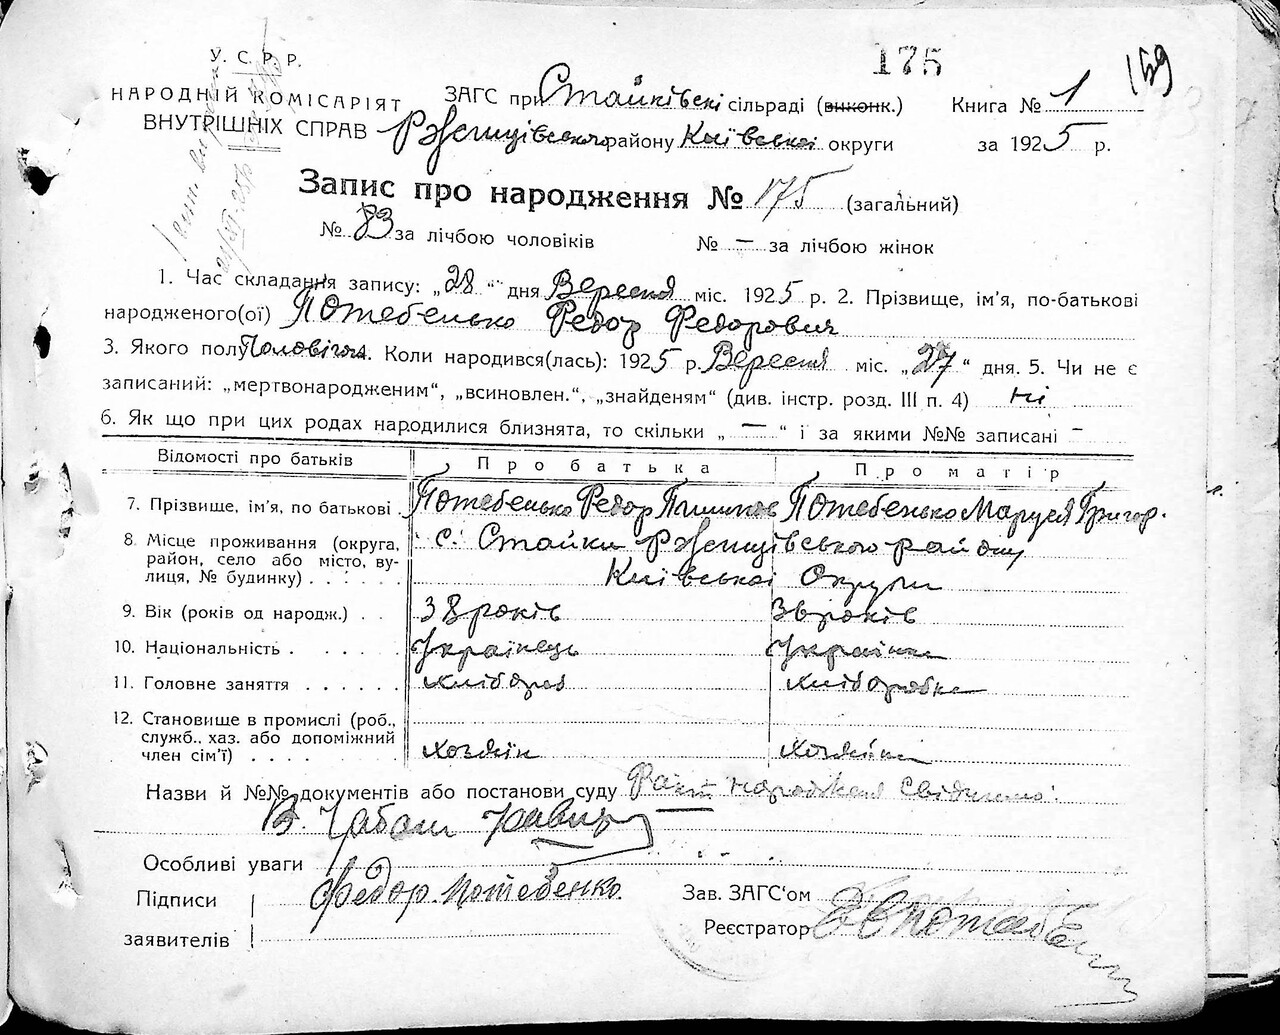 175
159
У. С. Р. Р.
НАРОДНІЙ КОМІСАРІЯТ
ВНУТРІШНІХ СПРАВ
ЗАГС при Стайківскі сільраді (виконк.) Книга № 1
Ржищівського району Київської округи за 1925 р.
Запис про народження № 175 (загальний)
№ 83 за лічбою чоловіків № — за лічбою жінок
1. Час складання запису: „28“ дня Вересня міс. 1925 р. 2. Прізвище, ім'я, по-батькові
народженого(ої) Потебенько Федор Федорович
3. Якого полу 4. Коли народився(лась): 1925 р. Вересня міс. „27“ дня. 5. Чи не є
записаний: „мертвонародженим“, „всиновлен.“, „знайденям“ (див. інстр. розд. III п. 4) ні
6. Як що при цих родах народилися близнята, то скільки „ — “ і за якими №№ записані —
Відомості про батьків Про батька Про матір
7. Прізвище, ім'я, по батькові Потебенько Федор Потебенько Маруся Григор.
8. Місце проживання (округа, с. Стайки Ржищівського району
район, село або місто, ву-
лиця, № будинку) Київської Округи
9. Вік (років од народж.) 38 років 36 років
10. Національність Українець Українка
11. Головне заняття хлібороб хліборобка
12. Становище в промислі (роб.,
служб., хаз. або допоміжний
член сім'ї) хозяїн хозяйка
Назви й №№ документів або постанови суду Факт народженя свідчимо:
В. Чабан
Особливі уваги
Підписи Федор Потебенко Зав. ЗАГС'ом
заявителів Реєстратор